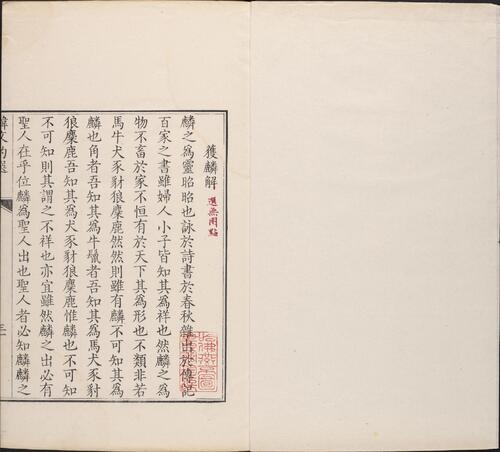 獲麟解 選無圈點
麟之爲靈昭昭也詠於詩書於春秋雜出於傳記
百家之書雖婦人小子皆知其爲祥也然麟之爲
物不畜於家不恒有於天下其爲形也不類非若
馬牛犬豕豺狼麋鹿然然則雖有麟不可知其爲
麟也角者吾知其爲牛鬣者吾知其爲馬犬豕豺
狼麋鹿吾知其爲犬豕豺狼麋鹿惟麟也不可知
不可知則其謂之不祥也亦宜雖然麟之出必有
聖人在乎位麟爲聖人出也聖人者必知麟麟之